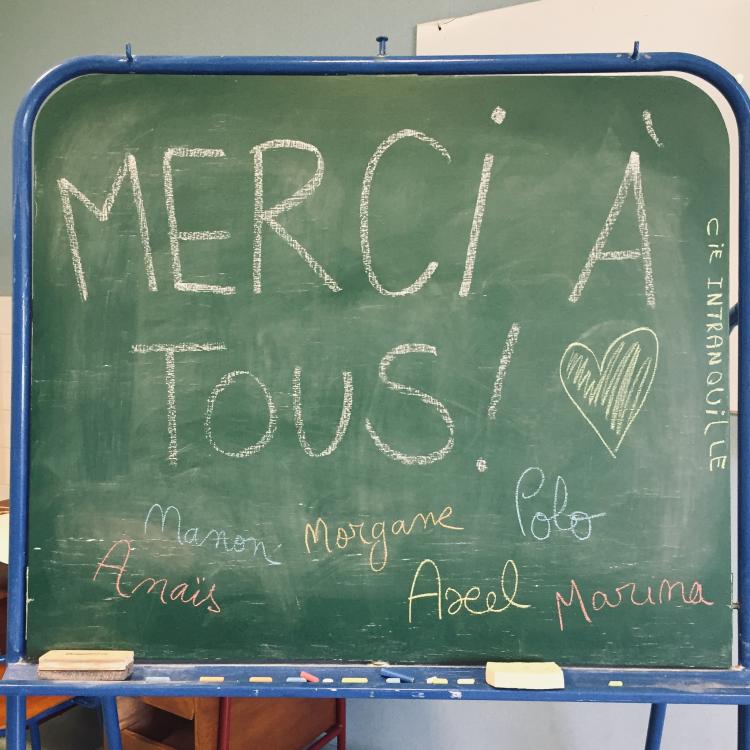 MERCi À
TOUS!
CiE INTRANQUiLLE
Manon Morgane Polo
Anaïs Axel Marina